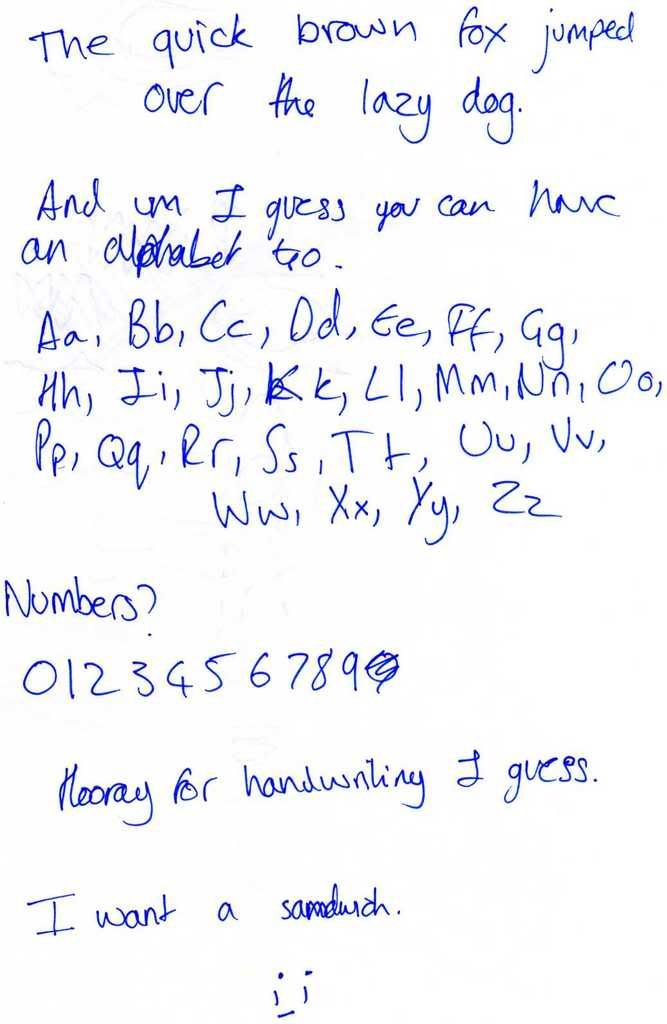 The quick brown fox jumped
over the lazy dog.
And um I guess you can have
an alphabet too.
Aa, Bb, Cc, Dd, Ee, Ff, Gg,
Hh, Ii, Jj, Kk, Ll, Mm, Nn, Oo,
Pp, Qq, Rr, Ss, Tt, Uu, Vv,
Ww, Xx, Yy, Zz
Numbers?
0123456789
Hooray for handwriting I guess.
I want a sandwich.